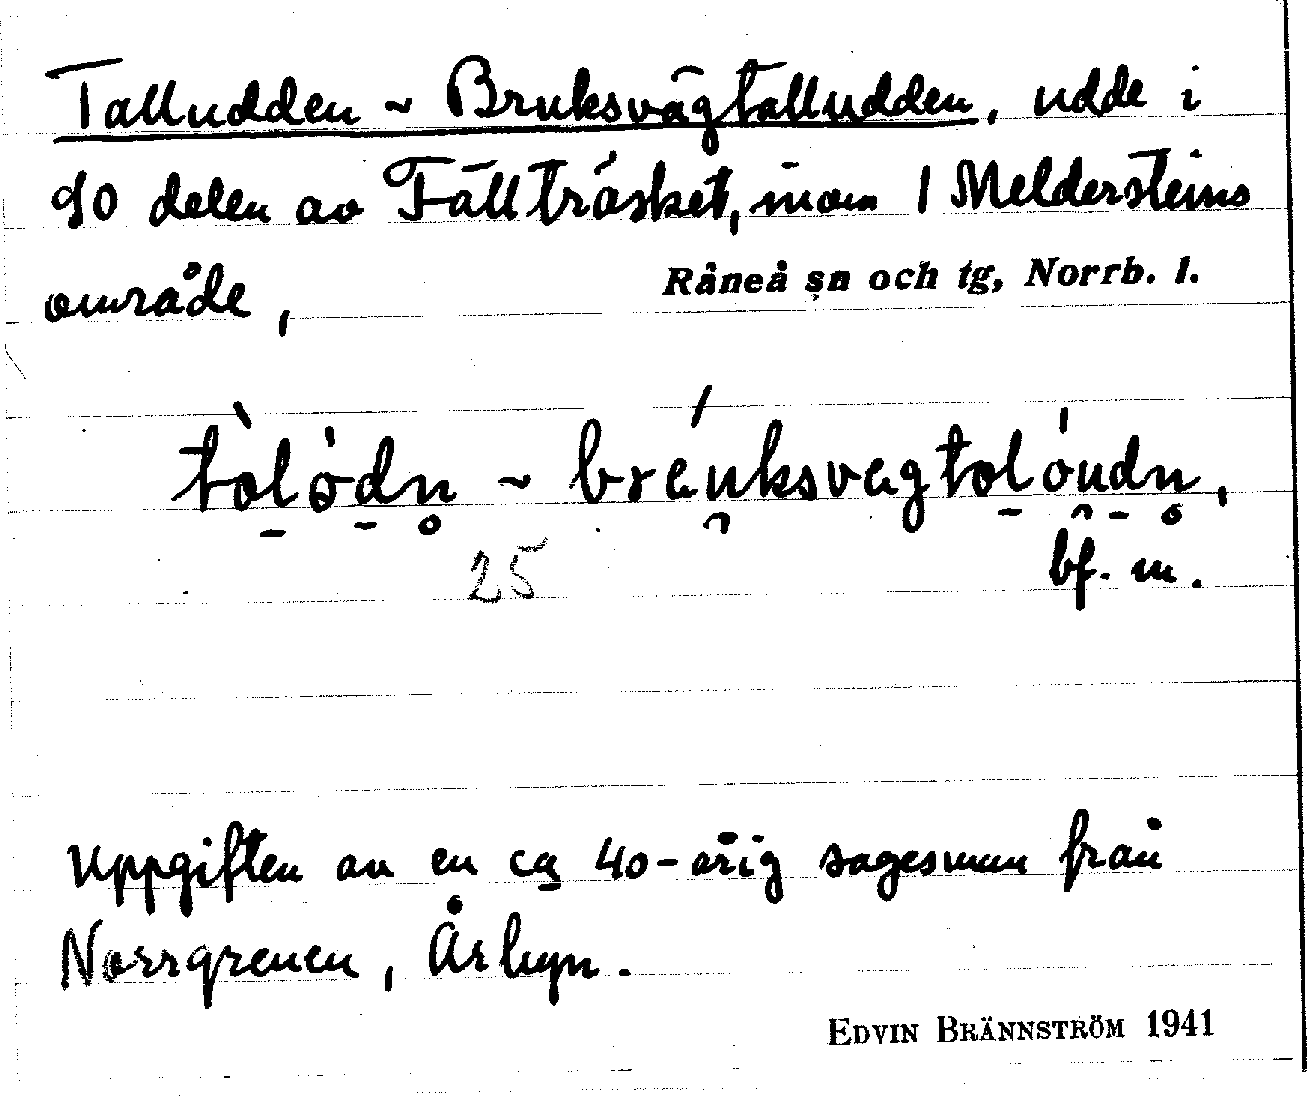 Talludden ~ Bruksvägtalludden, udde i
SO delen av Fällträsket, inom 1 Meldersteins
område, Råneå sn och tg, Norrb. l.
tòlödn ~ bráuksvegtolóudn,
25 bf. m.
Uppgiften av en ca 40-årig sagesman från
Norrgrenen, Årbyn.
EDVIN BRÄNNSTRÖM 1941